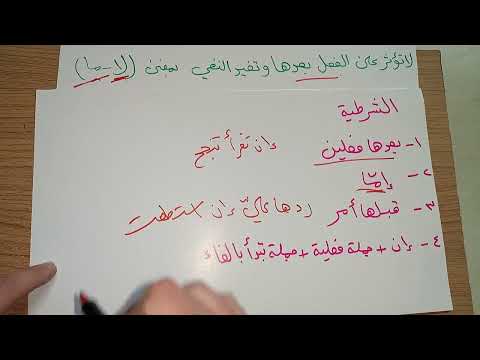 لا تؤثر على الفعل بعدها وتفيد النفي بمعنى (لا - ما)
الشرطية
١- بعدها فعلين إن تقرأ تنجح
٢- إمّا
٣- قبلها أمر ردها عليّ إن استطعت
٤- إن + جملة فعلية + جملة تبدأ بالفاء